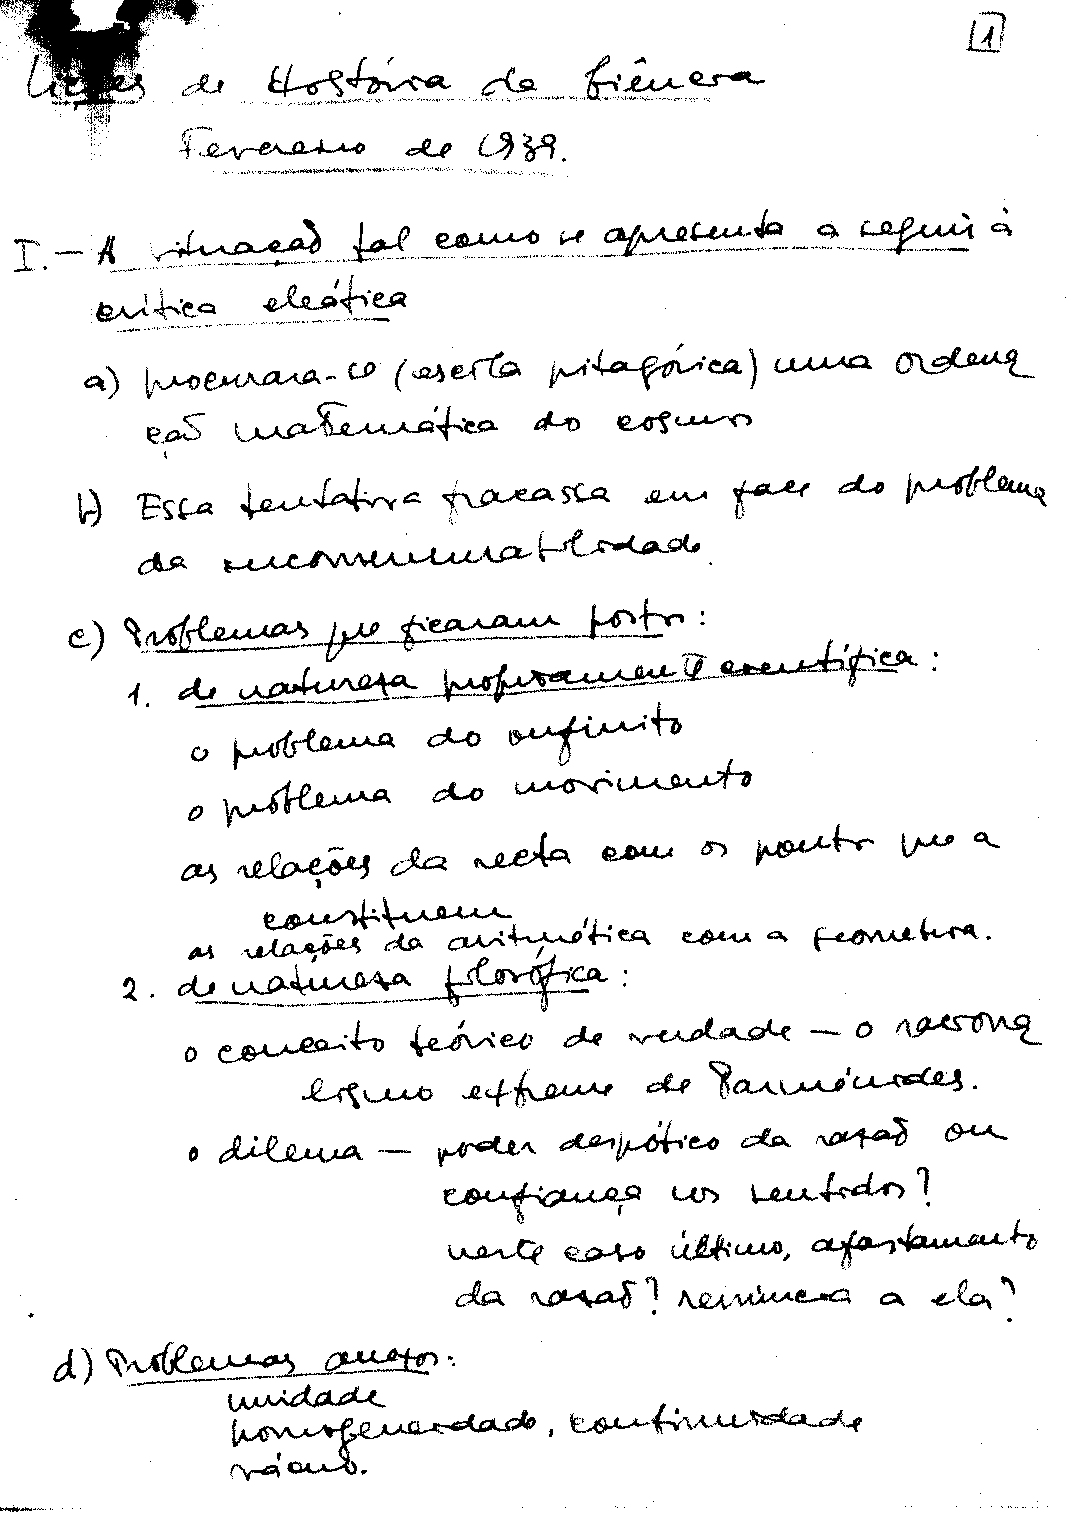 1
Lições de História da Ciência
Fevereiro de 1939.
I. — A situação tal como se apresenta a seguir à
crítica eleática
a) procurara-se (escola pitagórica) uma ordena
ção matemática do cosmos
b) Essa tentativa fracassa em face do problema
da incomensurabilidade.
c) Problemas que ficaram postos:
1. de natureza propriamente científica:
o problema do infinito
o problema do movimento
as relações da recta com os pontos que a
constituem
as relações da aritmética com a geometria.
2. de natureza filosófica:
o conceito teórico de verdade — o raciona
lismo extreme de Parménides.
o dilema — poder despótico da razão ou
confiança nos sentidos?
neste caso último, afastamento
da razão? renúncia a ela?
d) Problemas anexos:
unidade
homogeneidade, continuidade
vácuo.